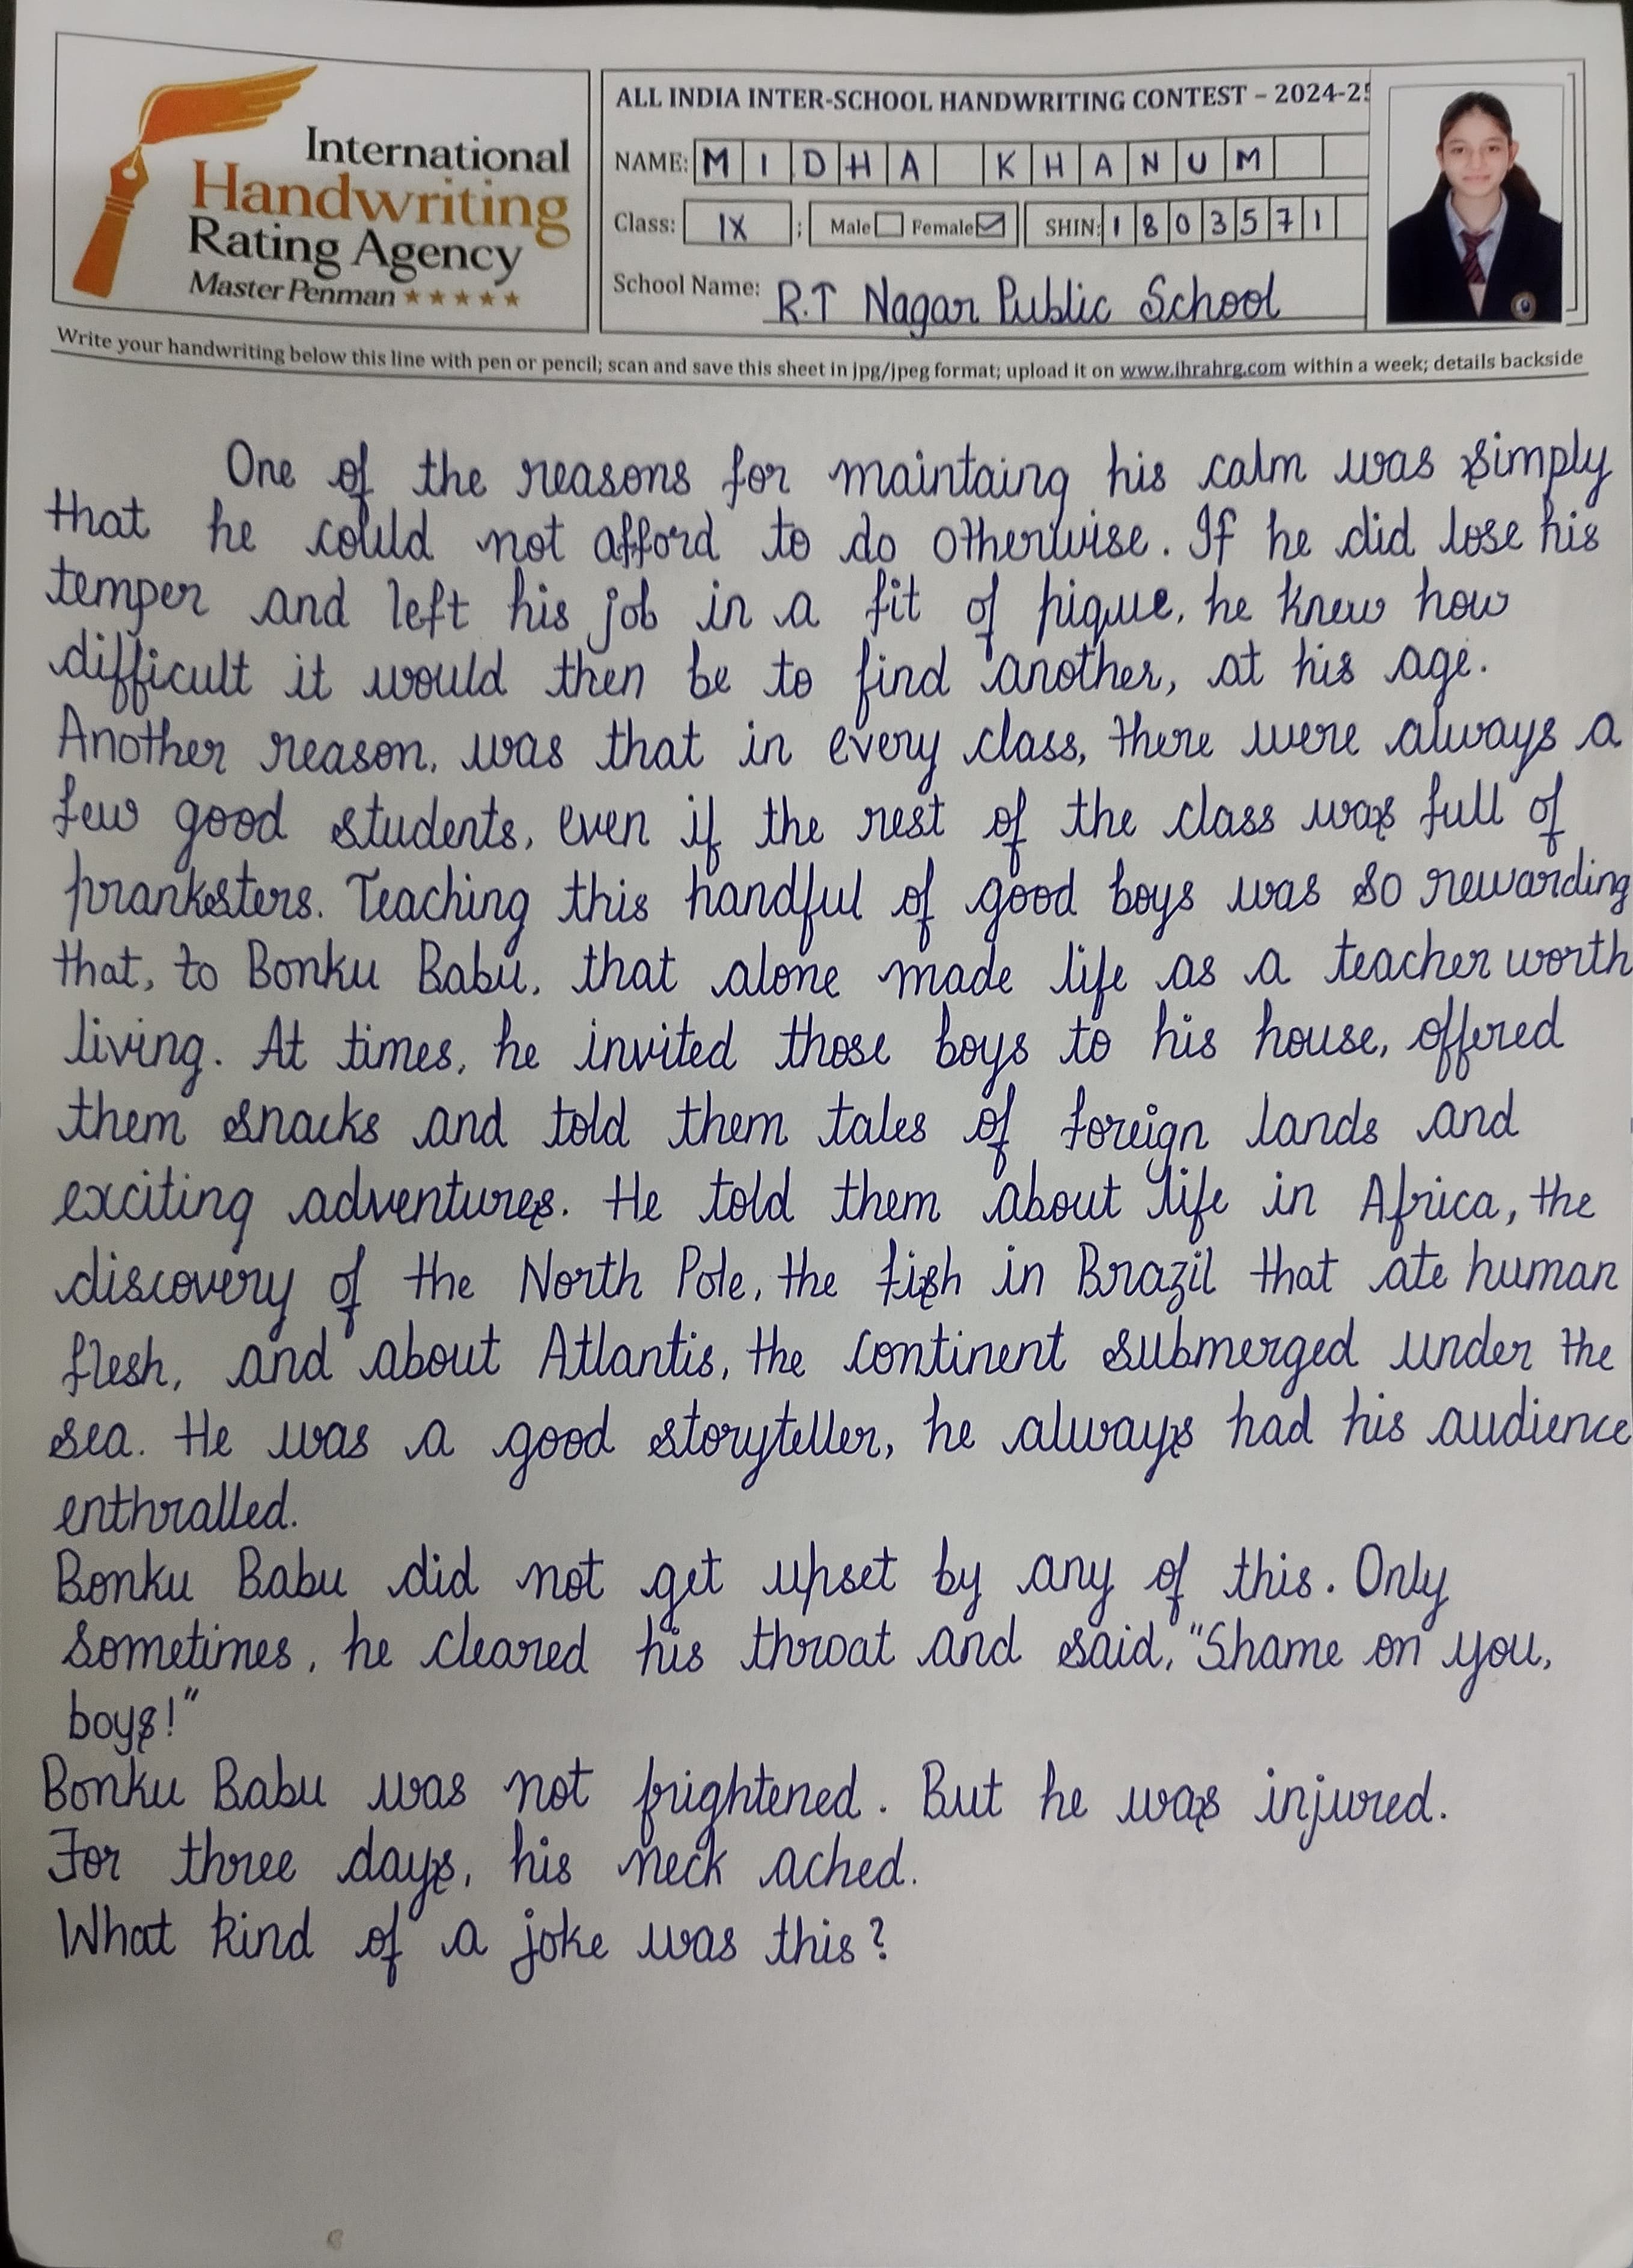 International
Handwriting
Rating Agency
Master Penman ★★★★★
ALL INDIA INTER-SCHOOL HANDWRITING CONTEST – 2024-25
NAME: MIDHA KHANUM
Class: IX ; Male Female SHIN: 1803571
School Name: R.T Nagar Public School
Write your handwriting below this line with pen or pencil; scan and save this sheet in jpg/jpeg format; upload it on www.ihrahrg.com within a week; details backside
One of the reasons for maintaing his calm was simply
that he could not afford to do otherwise. If he did lose his
temper and left his job in a fit of pique, he knew how
difficult it would then be to find another, at his age.
Another reason, was that in every class, there were always a
few good students, even if the rest of the class was full of
pranksters. Teaching this handful of good boys was so rewarding
that, to Bonku Babu, that alone made life as a teacher worth
living. At times, he invited those boys to his house, offered
them snacks and told them tales of foreign lands and
exciting adventures. He told them about life in Africa, the
discovery of the North Pole, the fish in Brazil that ate human
flesh, and about Atlantis, the continent submerged under the
sea. He was a good storyteller, he always had his audience
enthralled.
Bonku Babu did not get upset by any of this. Only
sometimes, he cleared his throat and said, "Shame on you,
boys!"
Bonku Babu was not frightened. But he was injured.
For three days, his neck ached.
What kind of a joke was this?